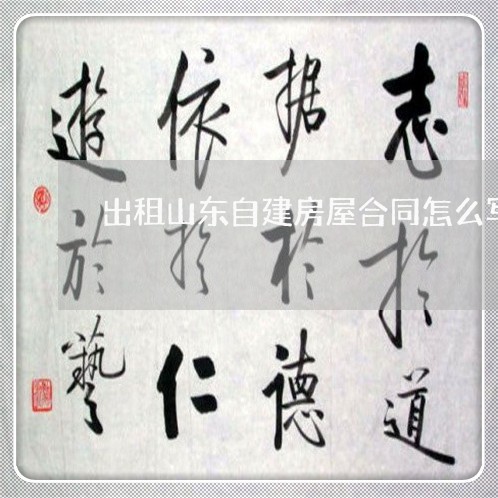 志於道
据於德
依於仁
遊於藝
出租山东自建房屋合同怎么